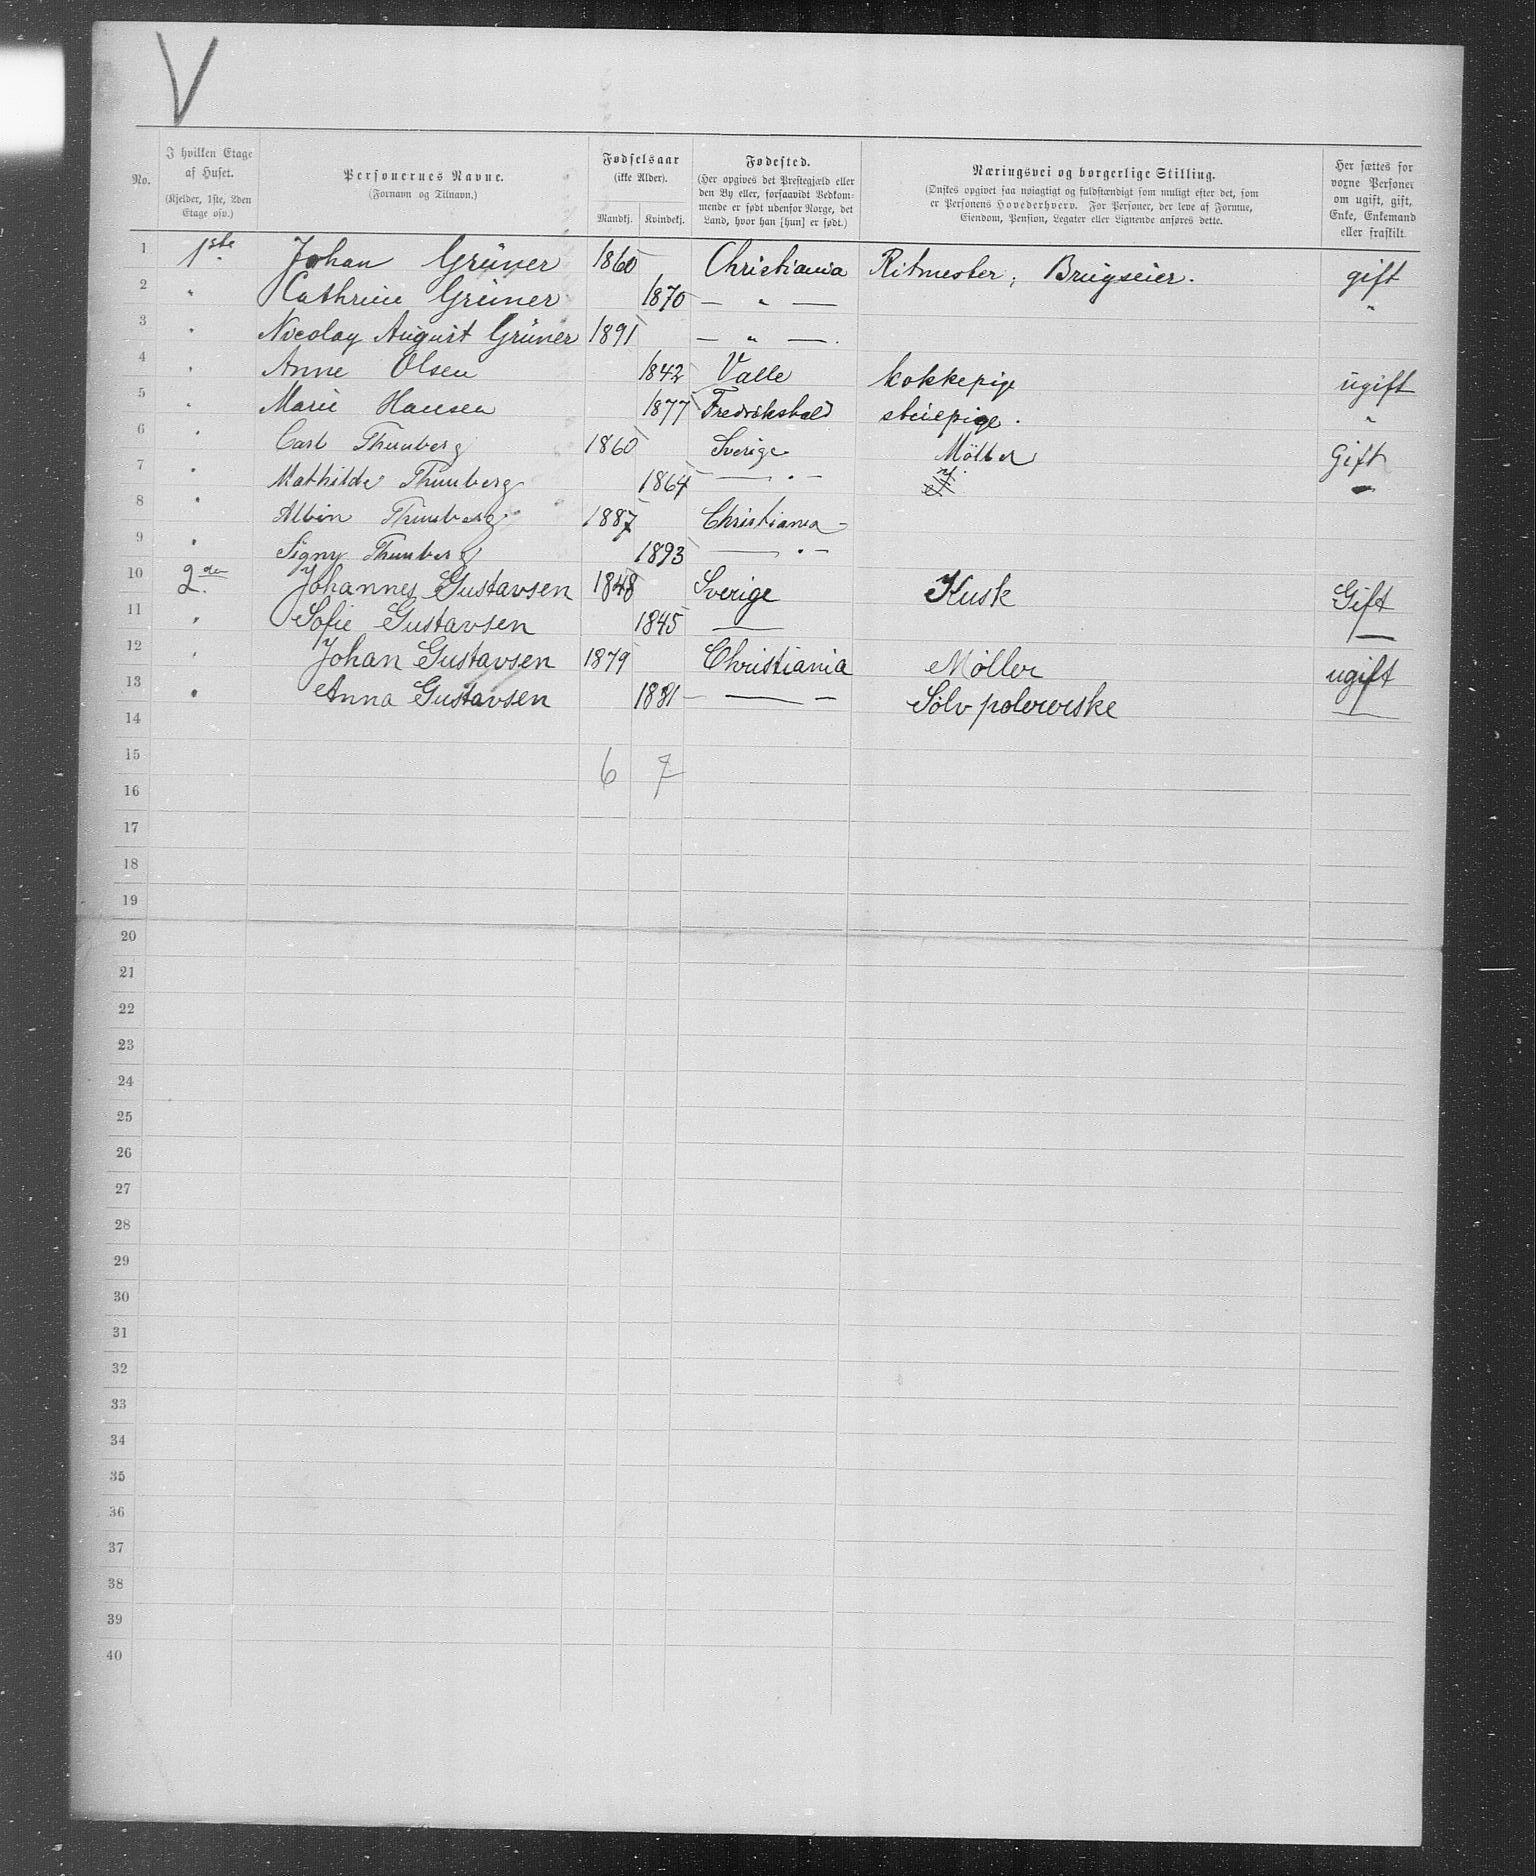 V
No.
I hvilken Etage af Huset. (Kjelder, 1ste, 2den Etage osv.)
Personernes Navne. (Fornavn og Tilnavn.)
Fødselsaar (ikke Alder). Mandkj. Kvindekj.
Fødested. (Her opgives det Prestegjæld eller den By eller, forsaavidt Vedkommende er født udenfor Norge, det Land, hvor han [hun] er født.)
Næringsvei og borgerlige Stilling. (Ønskes opgivet saa nøiagtigt og fuldstændigt som muligt efter det, som er Personens Hovederhverv. For Personer, der leve af Formue, Eiendom, Pension, Legater eller Lignende anføres dette.
Her sættes for voxne Personer om ugift, gift, Enke, Enkemand eller fraskilt.
1 1ste Johan Grüner 1860 Christiania Ritmester; Brugseier. gift
2 " Cathrine Grüner 1870 — " — "
3 " Nicolay August Grüner 1891 — " —.
4 " Anne Olsen 1842 Valle kokkepige ugift
5 " Marie Hansen 1877 Fredrikshald stuepige. "
6 " Carl Thunberg 1860 Sverige Möller Gift
7 " Mathilde Thunberg 1864 — " — —
8 " Albin Thunberg 1887 Christiania -
9 " Signy Thunberg 1893 — " —
10 2den Johannes Gustavsen 1848 Sverige Kusk Gift
11 " Sofie Gustavsen 1845 — —
12 " Johan Gustavsen 1879 Christiania Møller ugift
13 " Anna Gustavsen 1881 — — Sølv polererske —
14
15 6 7
16
17
18
19
20
21
22
23
24
25
26
27
28
29
30
31
32
33
34
35
36
37
38
39
40